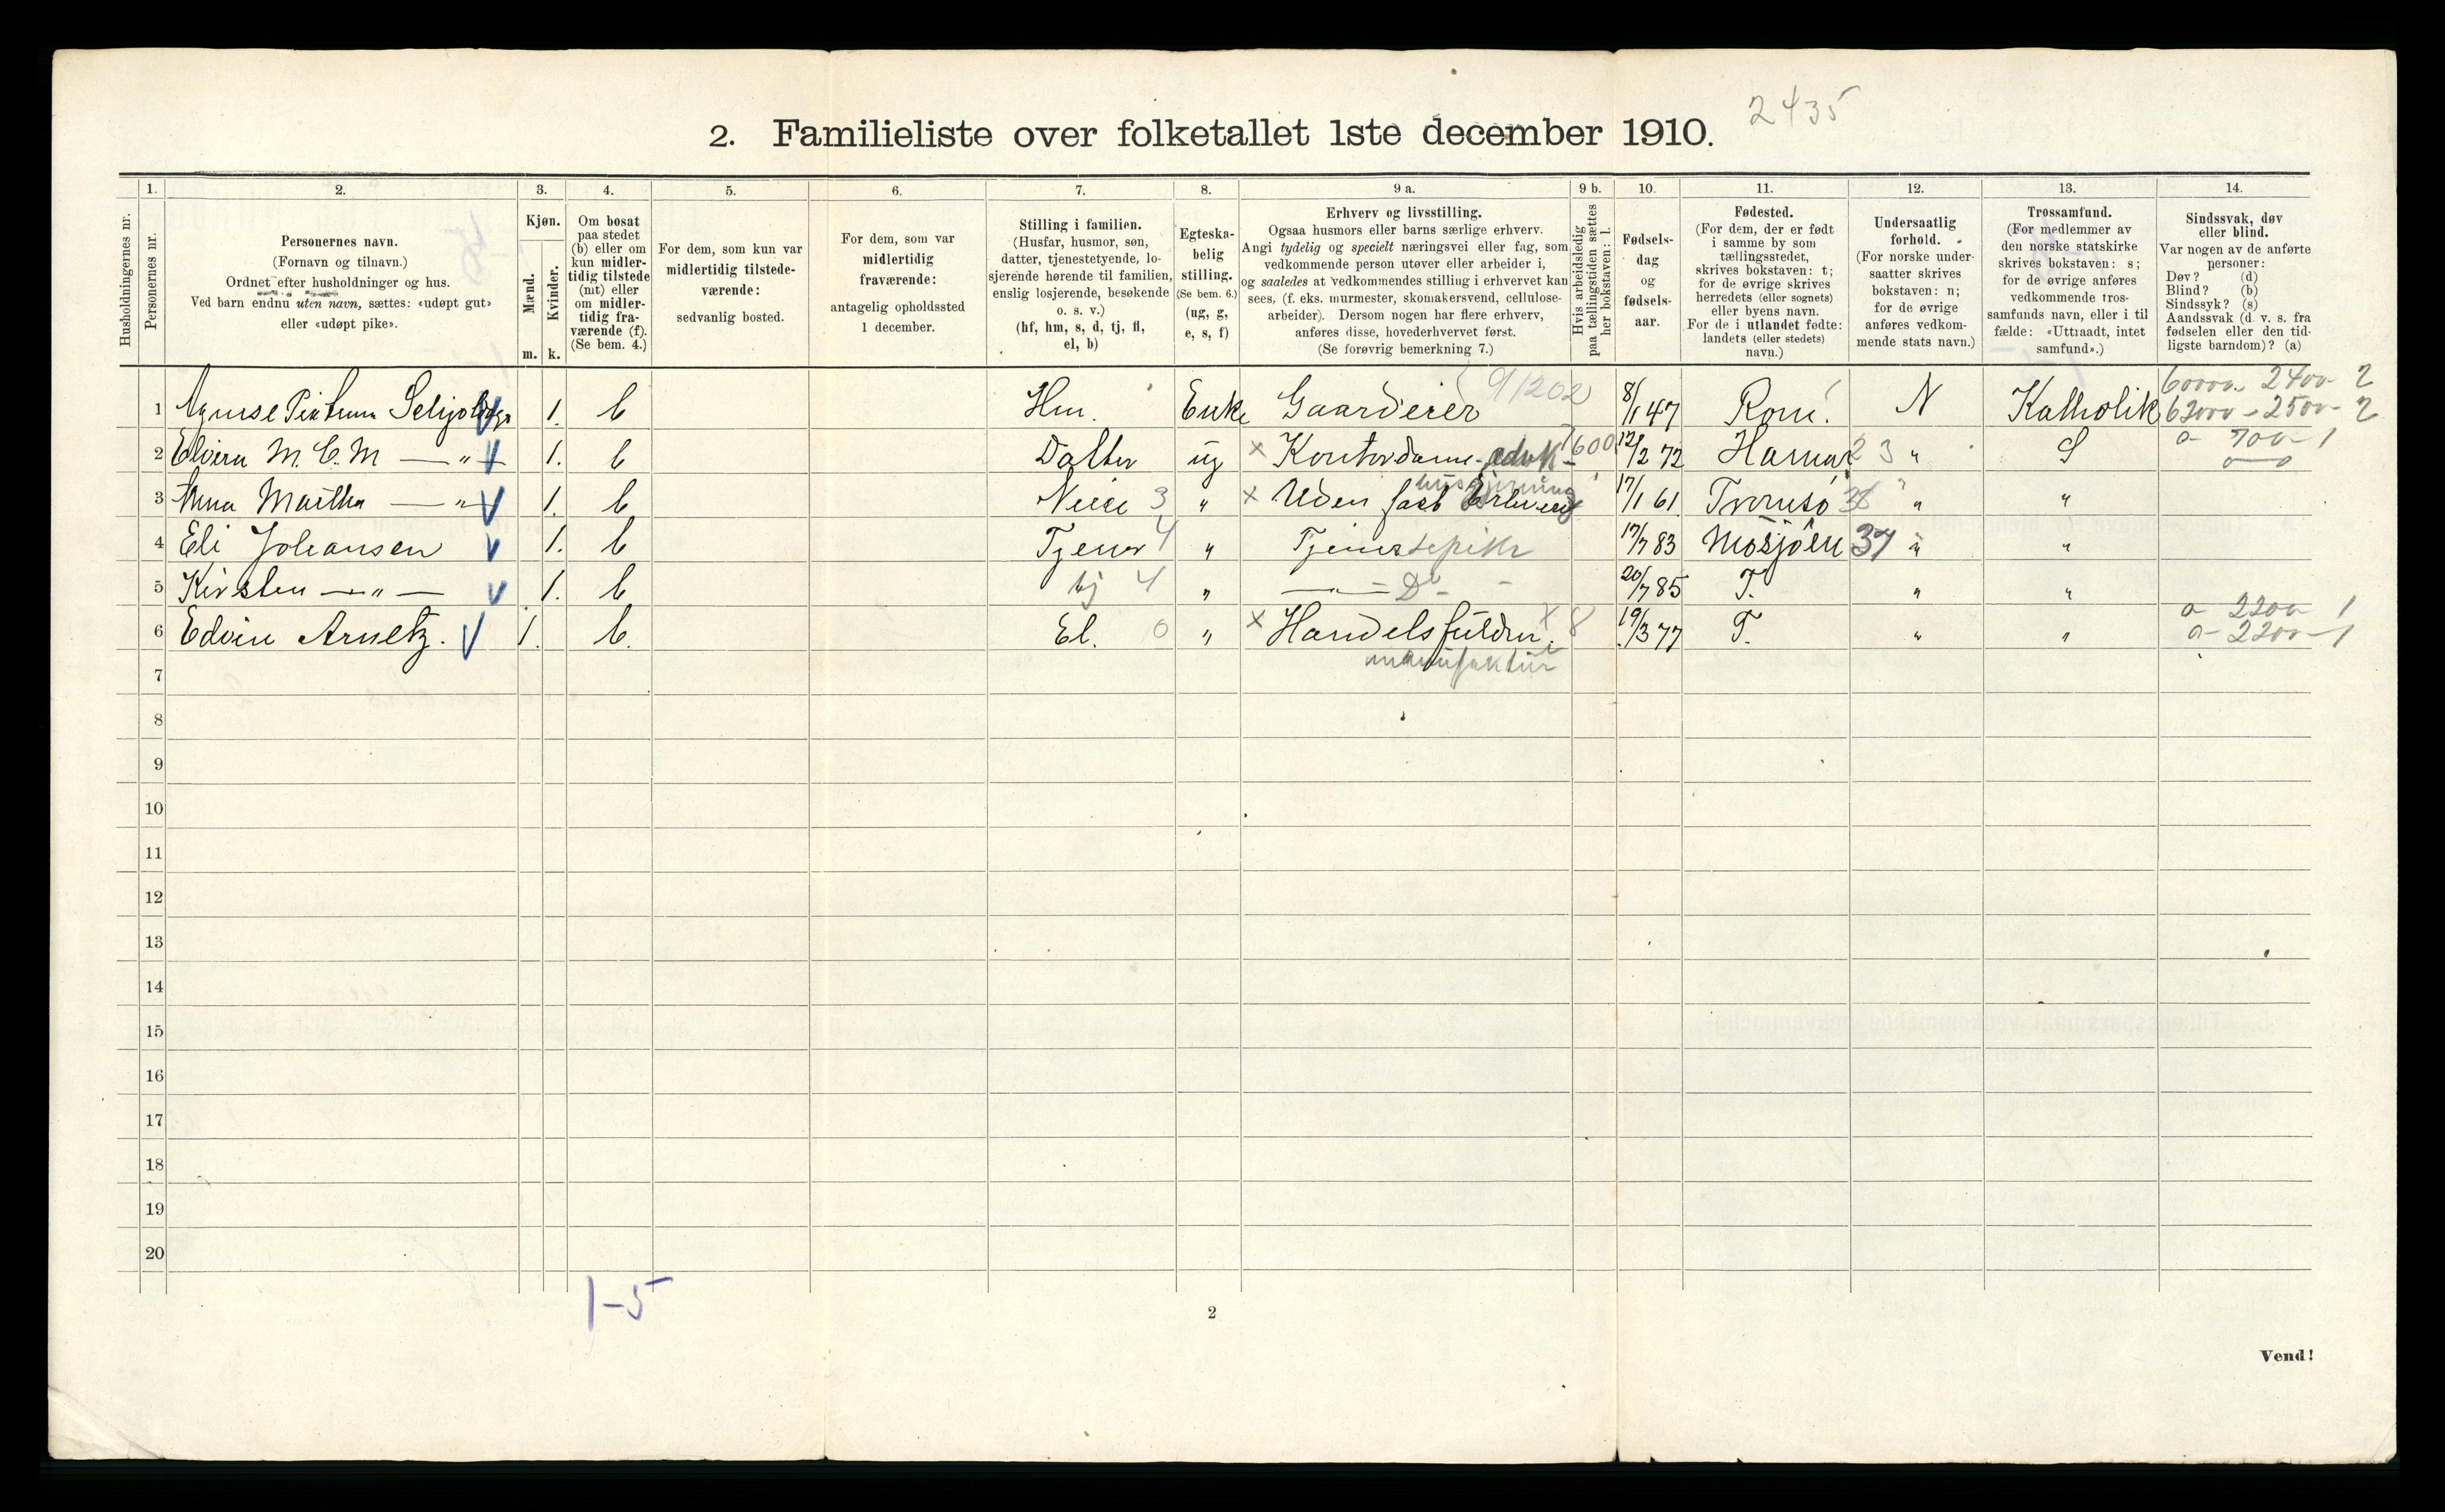 2435
2. Familieliste over folketallet 1ste december 1910.
Husholdningernes nr.
1. Personernes nr.
2. Personernes navn.
(Fornavn og tilnavn.)
Ordnet efter husholdninger og hus.
Ved barn endnu uten navn, sættes: «udøpt gut»
eller «udøpt pike».
3. Kjøn.
Mænd. m.
Kvinder. k.
4. Om bosat
paa stedet
(b) eller om
kun midler-
tidig tilstede
(mt) eller
om midler-
tidig fra-
værende (f).
(Se bem. 4.)
5. For dem, som kun var
midlertidig tilstede-
værende:
sedvanlig bosted.
6. For dem, som var
midlertidig
fraværende:
antagelig opholdssted
1 december.
7. Stilling i familien.
(Husfar, husmor, søn,
datter, tjenestetyende, lo-
sjerende hørende til familien,
enslig losjerende, besøkende
o. s. v.)
(hf, hm, s, d, tj, fl,
el, b)
8. Egteska-
belig
stilling.
(Se bem. 6.)
(ug, g,
e, s, f)
9 a. Erhverv og livsstilling.
Ogsaa husmors eller barns særlige erhverv.
Angi tydelig og specielt næringsvei eller fag, som
vedkommende person utøver eller arbeider i,
og saaledes at vedkommendes stilling i erhvervet kan
sees, (f. eks. murmester, skomakersvend, cellulose-
arbeider). Dersom nogen har flere erhverv,
anføres disse, hovederhvervet først.
(Se forøvrig bemerkning 7.)
9 b. Hvis arbeidsledig
paa tællingstiden sættes
her bokstaven: l.
10. Fødsels-
dag
og
fødsels-
aar.
11. Fødested.
(For dem, der er født
i samme by som
tællingsstedet,
skrives bokstaven: t;
for de øvrige skrives
herredets (eller sognets)
eller byens navn.
For de i utlandet fødte:
landets (eller stedets)
navn.)
12. Undersaatlig
forhold.
(For norske under-
saatter skrives
bokstaven: n;
for de øvrige
anføres vedkom-
mende stats navn.)
13. Trossamfund.
(For medlemmer av
den norske statskirke
skrives bokstaven: s;
for de øvrige anføres
vedkommende tros-
samfunds navn, eller i til
fælde: «Uttraadt, intet
samfund».)
14. Sindssvak, døv
eller blind.
Var nogen av de anførte
personer:
Døv? (d)
Blind? (b)
Sindssyk? (s)
Aandssvak (d. v. s. fra
fødselen eller den tid-
ligste barndom)? (a)
1 1. b Hm. Enke Gaardeier 91202 8/1 47 Rom. N Katholik 60000 - 2400 - 2
62000 - 2500 - 2
2 Elvira M. C. M — " — 1. b Datter ug × Kontordame - advk 600 12/2 72 Hamar 23 " S 0 - 700 - 1
0 — 0
3 Anna Martha — " — 1. b Neice 3 " × Uden fast Erhverv husgjerning 17/1 61 Tromsø " "
4 Eli Johansen 1. b Tjener 4 " Tjenstepike 17/7 83 Mosjøen 37 " "
5 Kirsten — " — 1. b tj 4 " — Do - 20/7 85 T. " "
6 Edvin Arnetz. 1. b. El. 0 " × Handelsfuldm. × 8 19/3 77 T. " " 0 - 2200 1
0 - 2200 - 1
i manufaktur
7
8
9
10
11
12
13
14
15
16
17
18
19
20
1-5
2
Vend!